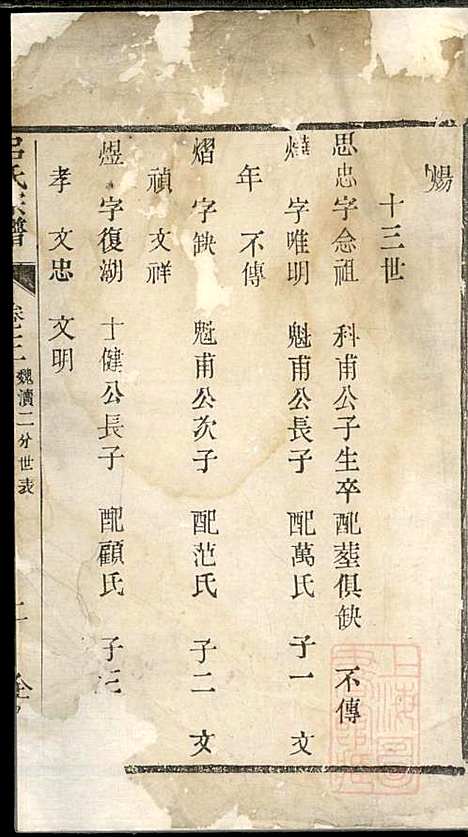 煬
十三世
思忠字念祖 科甫公子生卒配塟俱缺 不傳
㷸 字唯明 魁甫公長子 配萬氏 子一 文
年 不傳
熠 字缺 魁甫公次子 配范氏 子二 文
禎 文祥
煜 字復湖 士健公長子 配顧氏 子三
孝 文忠 文明
呂氏宗譜
魏瀆二分世表